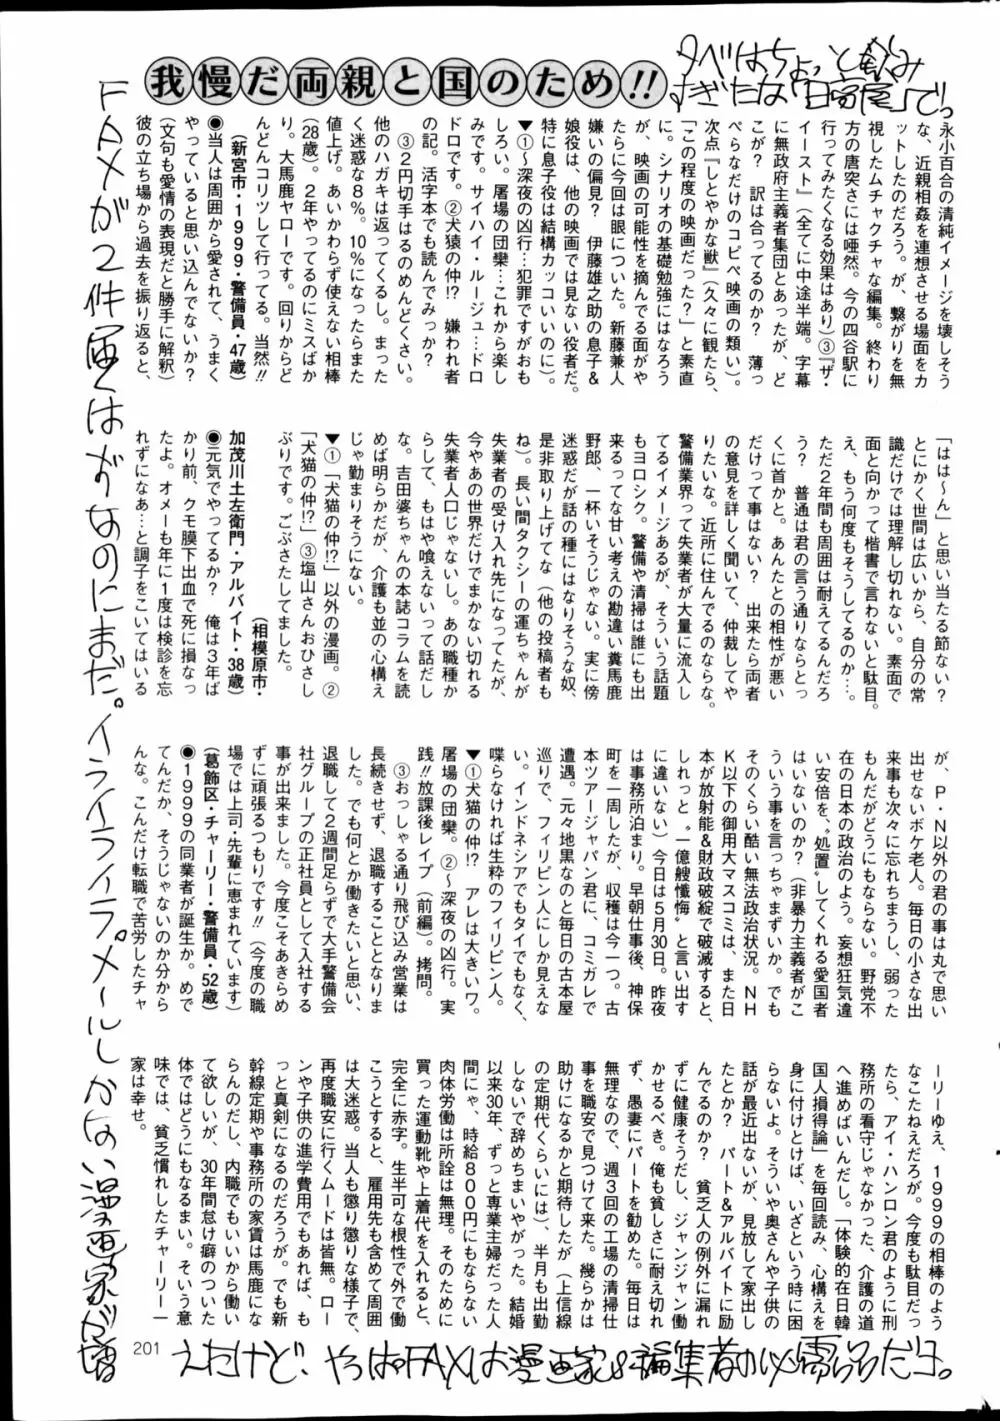 我慢だ両親と国のため!!
夕べはちょっと飲み
すぎたな「日高屋」でっ
永小百合の清純イメージを壊しそう
な、近親相姦を連想させる場面をカ
ットしたのだろう。が、繋がりを無
視したムチャクチャな編集。終わり
方の唐突さには唖然。今の四谷駅に
行ってみたくなる効果はあり)③『ザ・
イースト』(全てに中途半端。字幕
に無政府主義者集団とあったが、ど
こが? 訳は合ってるのか? 薄っ
ぺらなだけのコピペ映画の類い)。
次点『しとやかな獣』(久々に観たら、
「この程度の映画だった?」と素直
に。シナリオの基礎勉強にはなろう
が、映画の可能性を摘んでる面がや
たらに今回は眼についた。新藤兼人
嫌いの偏見? 伊藤雄之助の息子&
娘役は、他の映画では見ない役者だ。
特に息子役は結構カッコいいのに)。
▼①〜深夜の凶行…犯罪ですがおも
しろい。屠場の団欒…これから楽し
みです。サイハイ・ルージュ…ドロ
ドロです。②犬猿の仲!? 嫌われ者
の記。活字本でも読んでみっか?
③2円切手はるのめんどくさい。
他のハガキは返ってくるし。まった
く迷惑な8%。10%になったらまた
値上げ。あいかわらず使えない相棒
(28歳)。2年やってるのにミスばか
り。大馬鹿ヤローです。回りからど
んどんコリツして行ってる。当然!!
(新宮市・1999・警備員・47歳)
●当人は周囲から愛されて、うまく
やっていると思い込んでないか?
(文句も愛情の表現だと勝手に解釈)
彼の立ち場から過去を振り返ると、
「はは〜ん」と思い当たる節ない?
とにかく世間は広いから、自分の常
識だけでは理解し切れない。素面で
面と向かって楷書で言わないと駄目。
え、もう何度もそうしてるのか…。
ただ2年間も周囲は耐えてるんだろ
う? 普通は君の言う通りならとっ
くに首かと。あんたとの相性が悪い
だけって事はない? 出来たら両者
の意見を詳しく聞いて、仲裁してや
りたいな。近所に住んでるのならな。
警備業界って失業者が大量に流入し
てるイメージあるが、そういう話題
もヨロシク。警備や清掃は誰にも出
来るってな甘い考えの勘違い糞馬鹿
野郎、一杯いそうじゃない。実に傍
迷惑だが話の種にはなりそうな奴、
是非取り上げてな(他の投稿者も
ね)。長い間タクシーの運ちゃんが
失業者の受け入れ先になってたが、
今やあの世界だけでまかない切れる
失業者人口じゃないし。あの職種か
らして、もはや喰えないって話だし
な。吉田婆ちゃんの本誌コラムを読
めば明らかだが、介護も並の心構え
じゃ勤まりそうにない。
▼①「犬猫の仲!?」以外の漫画。②
「犬猫の仲!?」③塩山さんおひさし
ぶりです。ごぶさたしてました。
(相模原市・
加茂川土左衛門・アルバイト・38歳)
●元気でやってるか? 俺は3年ば
かり前、クモ膜下出血で死に損なっ
たよ。オメーも年に1度は検診を忘
れずになあ…と調子をこいてはいる
が、P・N以外の君の事は丸で思い
出せないボケ老人。毎日の小さな出
来事も次々に忘れちまうし、弱った
もんだがどうにもならない。野党不
在の日本の政治のよう。妄想狂気違
い安倍を、〝処置〟してくれる愛国者
はいないのか?(非暴力主義者がこ
ういう事を言っちゃまずいか。でも
そのくらい酷い無法政治状況。NH
K以下の御用大マスコミは、また日
本が放射能&財政破綻で破滅すると、
しれっと〝一億総懺悔〟と言い出す
に違いない)今日は5月30日。昨夜
は事務所泊まり。早朝仕事後、神保
町を一周したが、収穫は今一つ。古
本ツアージャパン君に、コミガレで
遭遇。元々地黒なのと毎日の古本屋
巡りで、フィリピン人にしか見えな
い。インドネシアでもタイでもなく、
喋らなければ生粋のフィリピン人。
▼①犬猫の仲!? アレは大きいワ。
屠場の団欒。②〜深夜の凶行。実
践!!放課後レイプ(前編)。拷問。
③おっしゃる通り飛び込み営業は
長続きせず、退職することとなりま
した。でも何とか働きたいと思い、
退職して2週間足らずで大手警備会
社グループの正社員として入社する
事が出来ました。今度こそあきらめ
ずに頑張るつもりです!!(今度の職
場では上司・先輩に恵まれています)
(葛飾区・チャーリー・警備員・52歳)
●1999の同業者が誕生か。めで
てんだか、そうじゃないのか分から
んな。こんだけ転職で苦労したチャ
ーリーゆえ、1999の相棒のよう
なこたねえだろが。今度も駄目だっ
たら、アイ・ハンロン君のように刑
務所の看守じゃなかった、介護の道
へ進めばいんだし。「体験的在日韓
国人損得論」を毎回読み、心構えを
身に付けとけば、いざという時に困
らないよ。そういや奥さんや子供の
話が最近出ないが、見放して家出し
たとか? パート&アルバイトに励
んでるのか? 貧乏人の例外に漏れ
ずに健康そうだし、ジャンジャン働
かせるべき。俺も貧しさに耐え切れ
ず、愚妻にパートを勧めた。毎日は
無理なので、週3回の工場の清掃仕
事を職安で見つけて来た。幾らかは
助けになるかと期待したが(上信線
の定期代くらいには)、半月も出勤
しないで辞めちまいやがった。結婚
以来30年、ずっと専業主婦だった人
間にゃ、時給800円にもならない
肉体労働は所詮は無理。そのために
買った運動靴や上着代を入れると、
完全に赤字。生半可な根性で外で働
こうとすると、雇用先も含めて周囲
は大迷惑。当人も懲り懲りな様子で、
再度職安に行くムードは皆無。ロー
ンや子供の進学費用でもあれば、も
っと真剣になるのだろうが。でも新
幹線定期や事務所の家賃は馬鹿にな
らんのだし、内職でもいいから働い
て欲しいが、30年間怠け癖のついた
体ではどうにもなるまい。そういう意
味では、貧乏慣れしたチャーリー一
家は幸せ。
FAXが2件届くはずなのにまだ。イライライライラ。メールしかない漫画家が増
えたけど、やっぱFAXは漫画家&編集者の必需品だヨ。
201